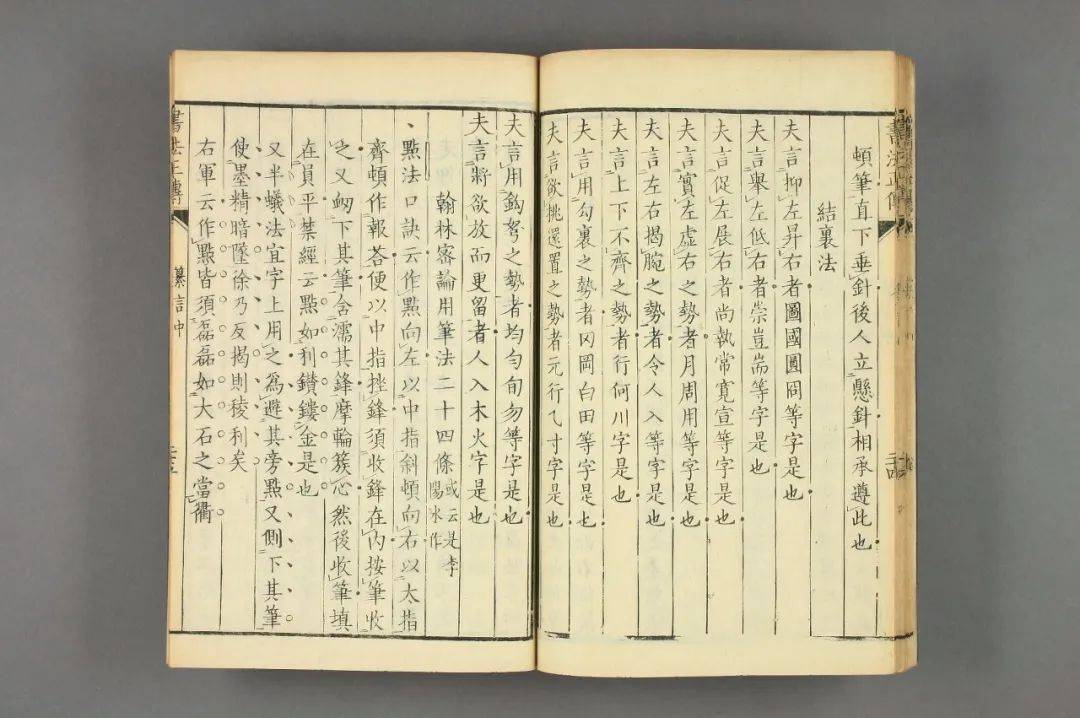 頓筆直下垂針後人立懸針相承遵此也
結裏法
夫言抑左昇右者圖國圓冏等字是也
夫言舉左低右者崇豈耑等字是也
夫言促左展右者尚執常寬宣等字是也
夫言實左虛右之勢者月周用等字是也
夫言左右揭腕之勢者令人入等字是也
夫言上下不齊之勢者行何川字是也
夫言用勾裹之勢者冈岡白田等字是也
夫言欲挑還置之勢者元行乙寸字是也
書法正傳
二十四
夫言用鈎弩之勢者均勻旬勿等字是也
夫言將欲放而更留者人入木火字是也
翰林密論用筆法二十四條或云是李陽冰作
丶點法口訣云作點向左以中指斜頓向右以大指
齊頓作報荅便以中指挫鋒須收鋒在內按筆收
之又衂下其筆含濡其鋒摩輪簇心然後收筆填
在員平禁經云點如利鑽鏤金是也
又半蟻法宜字上用之爲避其旁點又側下其筆
使墨精暗墜徐乃反揭則稜利矣
右軍云作點皆須磊磊如大石之當衢
書法正傳
纂言中
二十五